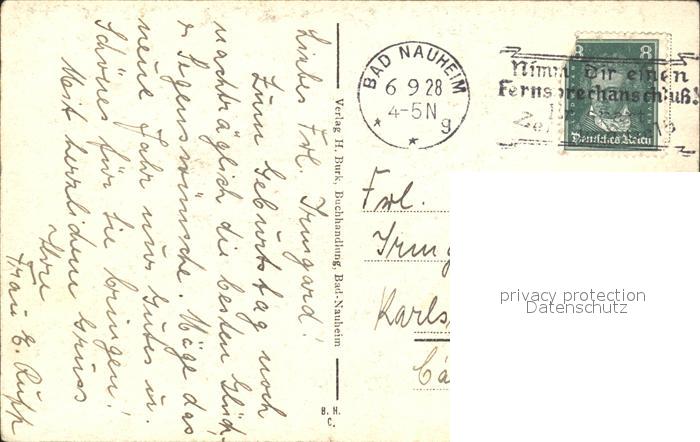 Liebes Frl. Irmgard!
Zum Geburtstag noch
nachträglich die besten Glück-
& Segenswünsche. Möge das
neue Jahr nur Gutes u.
Schönes für Sie bringen!
Mit herzlichem Gruss
Ihre
Frau E. Rupp
Verlag H. Burk, Buchhandlung, Bad-Nauheim
B. H.
C.
BAD NAUHEIM
6 9 28
4-5N
* * g
Nimm dir einen
Fernsprechanschluß!
8 8
Deutsches Reich
Frl.
Irmg
Karls
privacy protection
Datenschutz